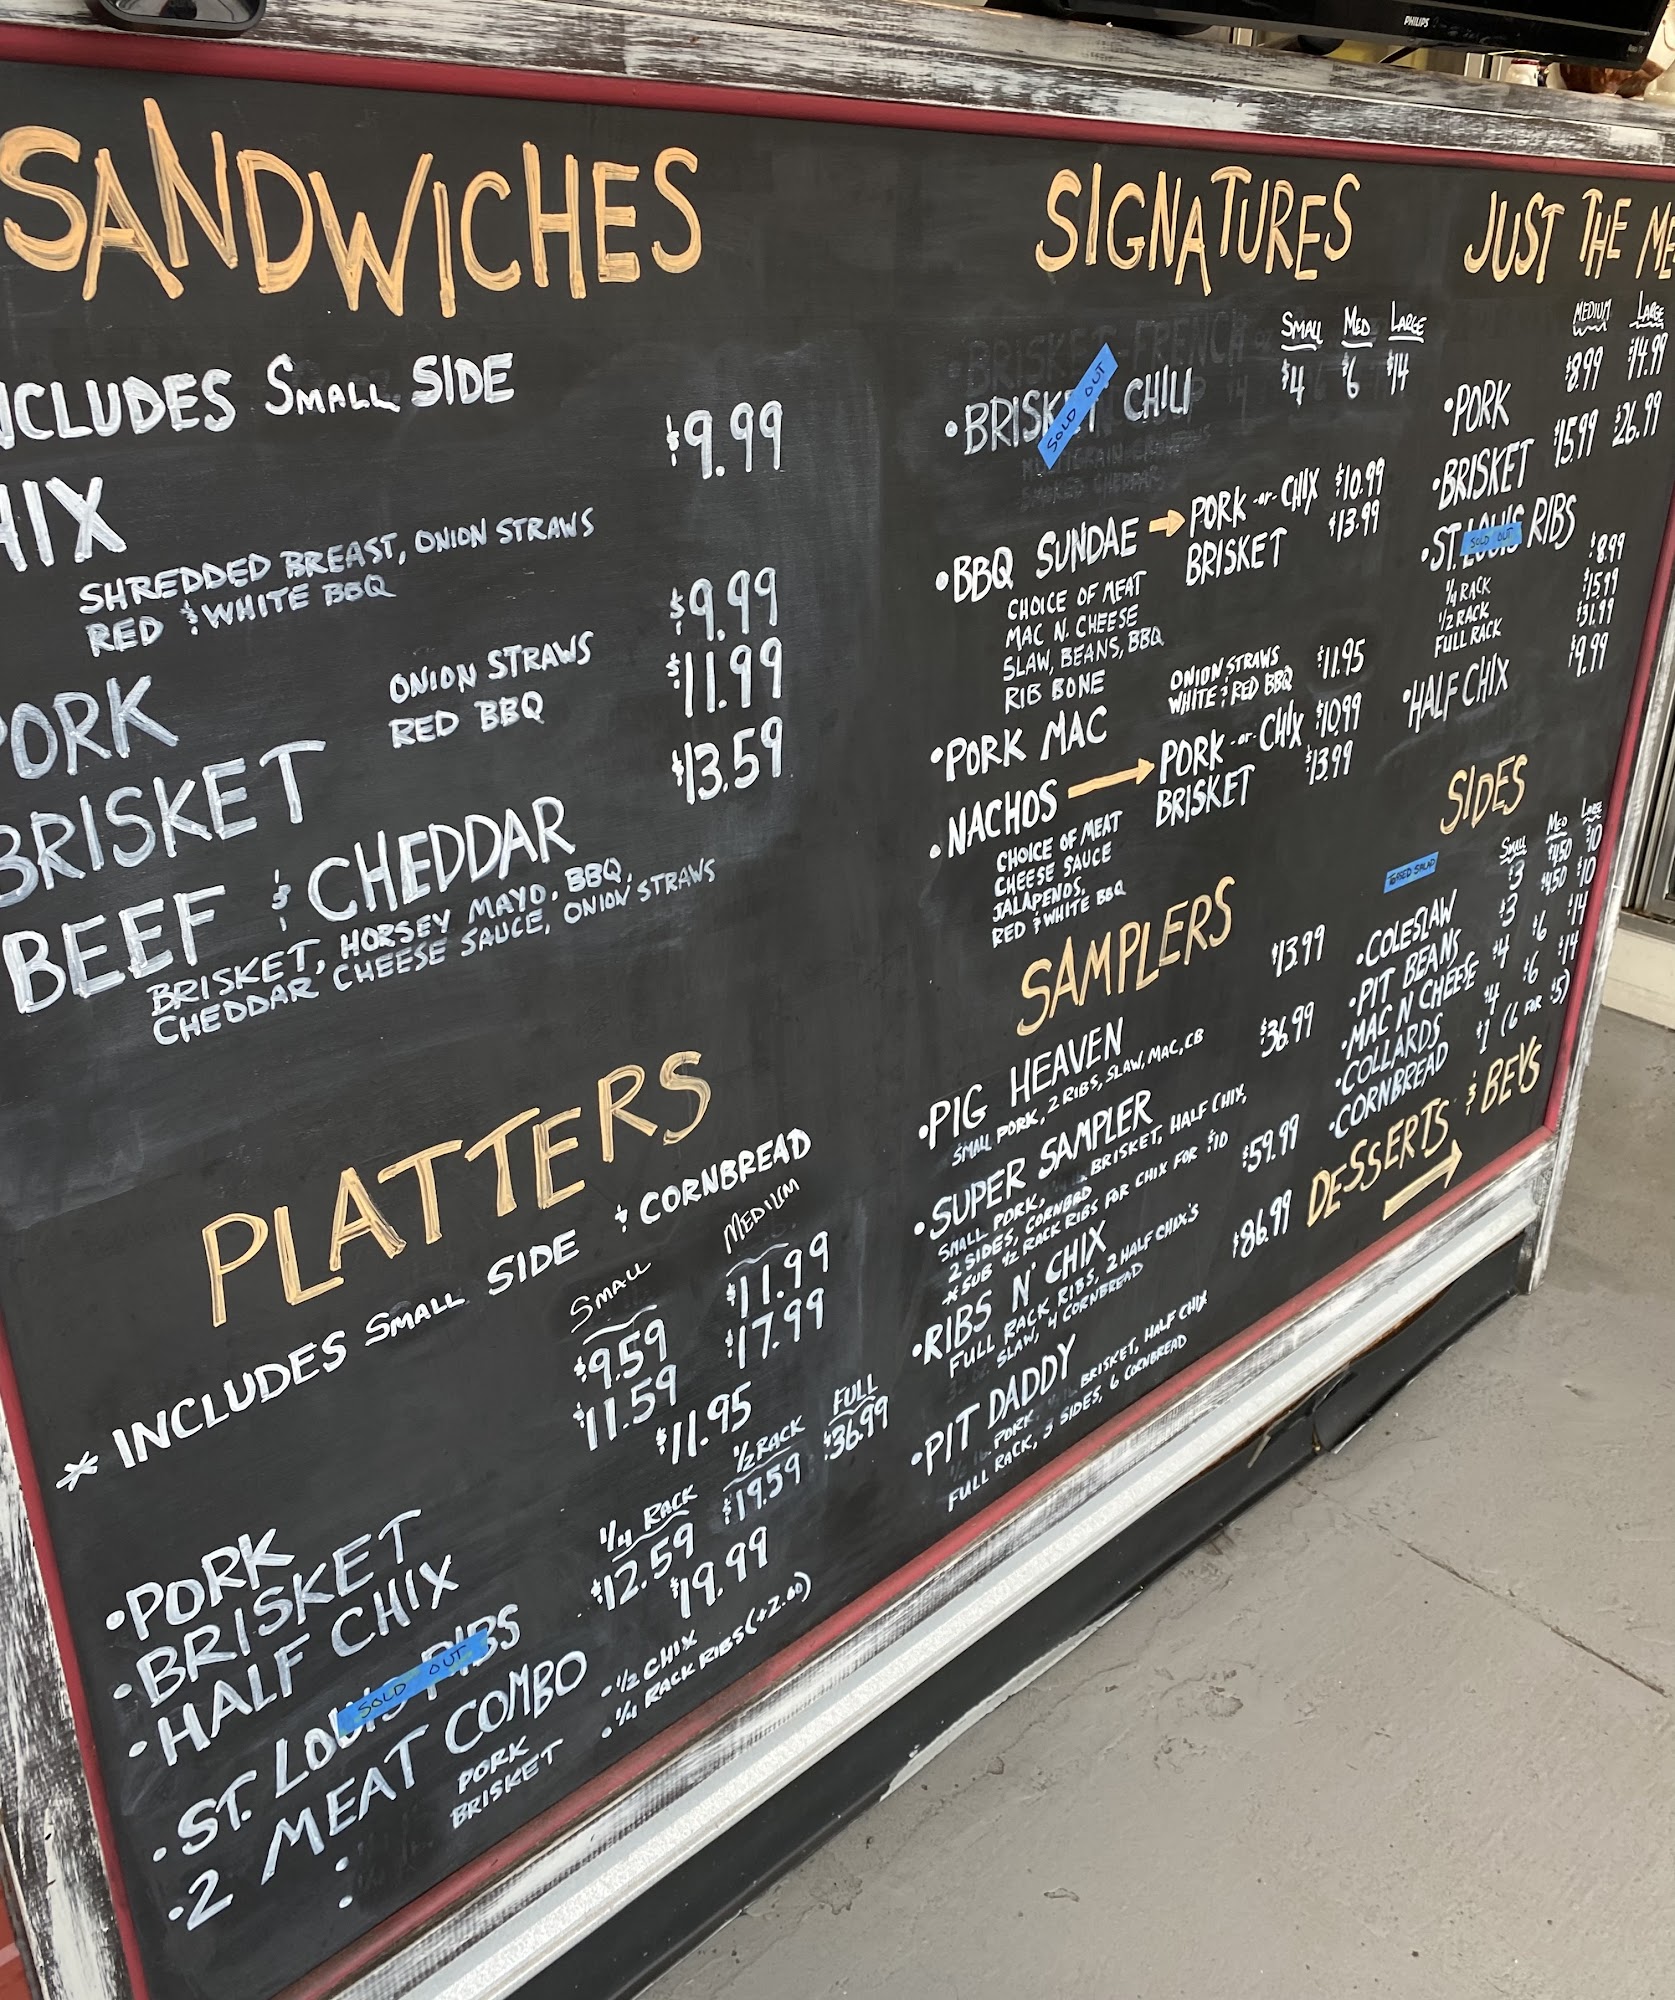 PHILIPS
SANDWICHES
NCLUDES SMALL SIDE
HIX $9.99
SHREDDED BREAST, ONION STRAWS
RED & WHITE BBQ
PORK $9.99
ONION STRAWS
RED BBQ
BRISKET $11.99
BEEF & CHEDDAR $13.59
BRISKET, HORSEY MAYO, BBQ,
CHEDDAR CHEESE SAUCE, ONION STRAWS
PLATTERS
* INCLUDES SMALL SIDE & CORNBREAD
SMALL MEDIUM
•PORK $9.59 $11.99
•BRISKET $11.59 $17.99
•HALF CHIX $11.95
1/4 RACK 1/2 RACK FULL
•ST. LOUIS RIBS $12.59 $19.59 $36.99
SOLD OUT
•2 MEAT COMBO $19.99
PORK •1/2 CHIX
BRISKET •1/4 RACK RIBS (+2.00)
SIGNATURES
SMALL MED LARGE
•BRISKET CHILI $4 $6 $14
SOLD OUT
•BBQ SUNDAE → PORK -or- CHIX $10.99
BRISKET $13.99
CHOICE OF MEAT
MAC N. CHEESE
SLAW, BEANS, BBQ
RIB BONE
•PORK MAC ONION STRAWS $11.95
WHITE & RED BBQ
•NACHOS → PORK -or- CHIX $10.99
BRISKET $13.99
CHOICE OF MEAT
CHEESE SAUCE
JALAPENOS,
RED & WHITE BBQ
SAMPLERS
•PIG HEAVEN $13.99
SMALL PORK, 2 RIBS, SLAW, MAC, CB
•SUPER SAMPLER $36.99
SMALL PORK, BRISKET, HALF CHIX,
2 SIDES, CORNBRD
*SUB 1/2 RACK RIBS FOR CHIX FOR $10
•RIBS N' CHIX $59.99
FULL RACK RIBS, 2 HALF CHIX'S
SLAW, 4 CORNBREAD
•PIT DADDY $86.99
PORK, BRISKET, HALF CHIX
FULL RACK, 3 SIDES, 6 CORNBREAD
JUST THE ME
MEDIUM LARGE
•PORK $8.99 $14.99
•BRISKET $15.99 $26.99
•ST. LOUIS RIBS
SOLD OUT
1/4 RACK $8.99
1/2 RACK $15.99
FULL RACK $31.99
•HALF CHIX $9.99
SIDES
SMALL MED LARGE
TOSSED SALAD
•COLESLAW $3 $4.50 $10
•PIT BEANS $3 $4.50 $10
•MAC N CHEESE $4 $6 $14
•COLLARDS $4 $6 $14
•CORNBREAD $1 (6 FOR $5)
DESSERTS & BEVS